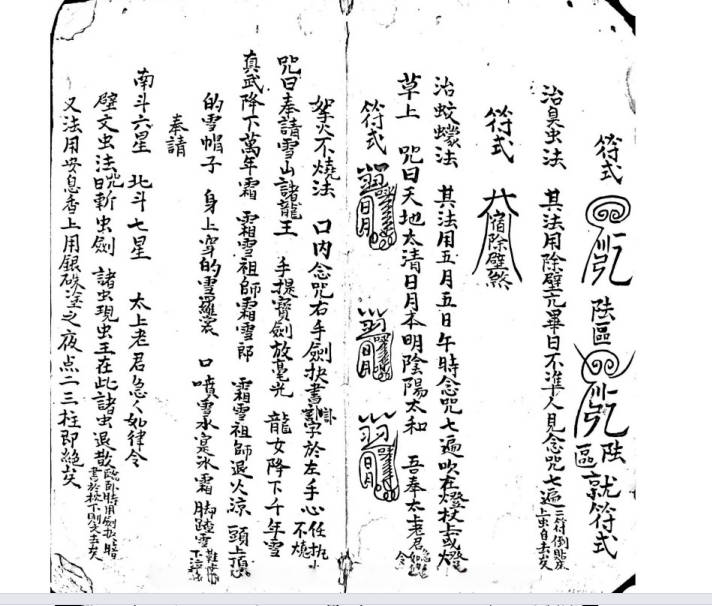 符式 陆區 陆區 就符式
治臭虫法 其法用除壁亢畢日不準人見念咒七遍三符倒貼床上虫自去矣
符式 宿除壁煞
治蚊蠓法 其法用五月五日午時念咒七遍吹在燈校上或燈
草上 咒曰天地太清日月本明陰陽太和 吾奉太上老君急急如律令
符式 日月 日月 日月
拏火不燒法 口内念咒右手劍抉書字於左手心任抓小不燒
咒曰奉請雪山諸龍王 手提寶劍放毫光 龍女降下千年雪
真武降下萬年霜 霜雪祖師霜雪郎 霜雪祖師退火涼 頭上頂
的雪帽子 身上穿的雪羅裳 口噴雪水寔冰霜 脚踏雪鞋
奉請
南斗六星 北斗七星 太上老君急急如律令
壁文虫法咒曰斬虫劍 諸虫現虫王在此諸虫退散臨卧時用劍抉暗書於枕下則虫去矣
又法用安息香上用銀硃塗之夜点二三柱即絕矣